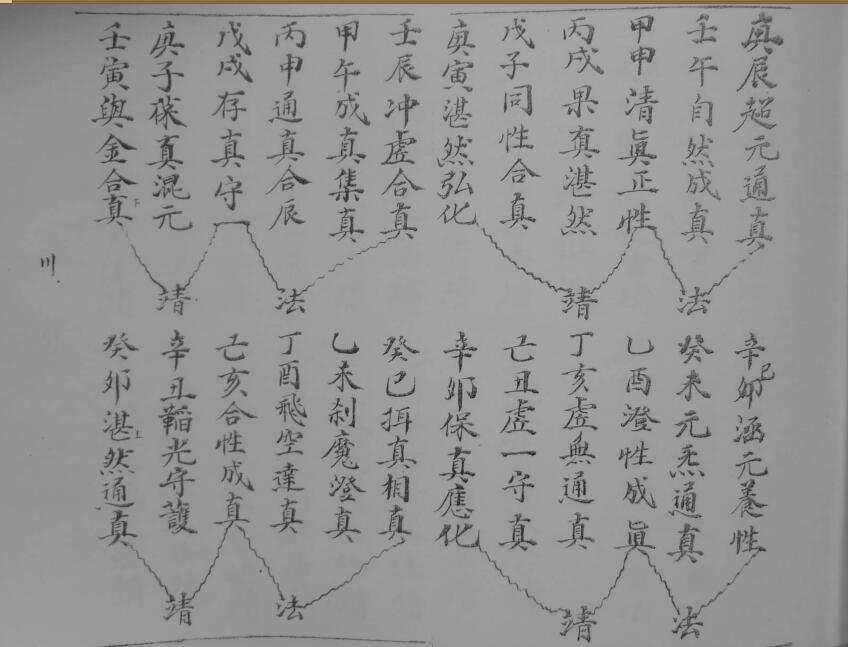 庚辰超元通真
壬午自然成真
甲申清眞正性
丙戌果真湛然
戊子同性合真
庚寅湛然弘化
壬辰冲虛合真
甲午成真集真
丙申通真合辰
戊戌存真守一
庚子葆真混元
壬寅與金合真
法
靖
法
靖
辛卯巳涵元養性
癸未元炁通真
乙酉澄性成眞
丁亥虛無通真
己丑虛一守真
辛卯保真應化
癸巳揖真相真
乙未刹魔澄真
丁酉飛空達真
己亥合性成真
辛丑韜光守護
癸卯湛然通真
法
靖
法
靖
川